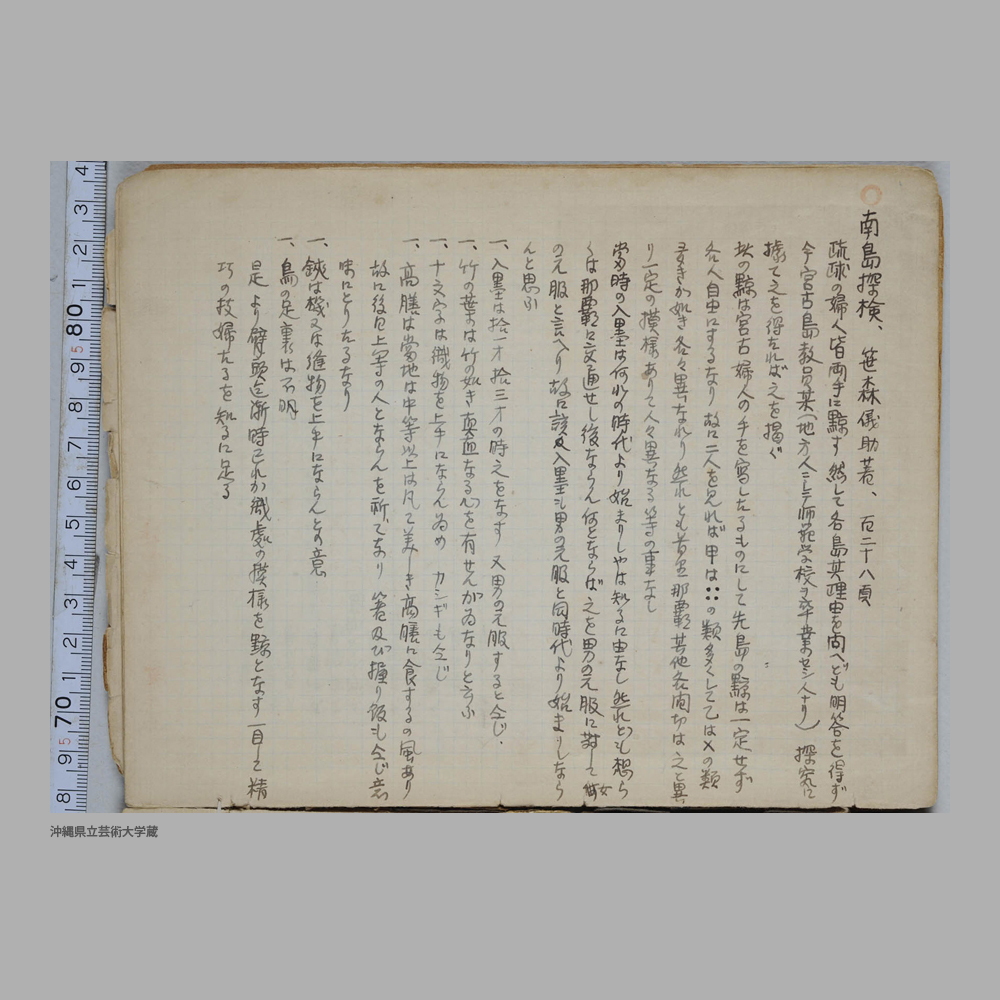 南島探検、 笹森儀助著、 百二十八頁
琉球の婦人皆両手に黥す 然して各島其理由を問へども明答を得ず
今宮古島教員某(地方人ニシテ師範学校ヲ卒業セシ人ナリ) 探究に
據て之を得たれば之を掲ぐ
此の黥は宮古婦人の手を写したるものにして先島の黥は一定せず
各人自由にするなり 故に二人を見れば甲は∷の類多くして乙は×の類
多きが如き各々異なれり 然れども首里那覇其他各間切は之と異
り一定の摸様ありて人々異なる等の事なし
当時の入墨は何れの時代より始まりしやは知るに由なし 然れども想ら
くは那覇と交通せし後ならん何とならば之を男の元服に対して女
の元服と言へり 故に該入墨も男の元服と同時代より始まりしなら
んと思ふ
一、入墨は拾一才拾三才の時之をなす 又男の元服すると仝じ.
一、竹の葉は竹の如き真直なる心を有せんがゐなりと云ふ
一、十文字は織物を上手にならんゐめ カシギも仝じ
一、高膳は当地は中等以上は凡て美しき高膳に食するの風あり
故に後日上等の人とならんを祈てなり 箸及び握り飯も仝じ意
味にとりたるなり
一、鋏は機又は縫物を上手にならんとの意
一、鳥の足裏は不明
是より臂頭迄漸時己れが織処の摸様を黥となす 一目して精
巧の技婦たるを知るに足る
8 9 5 70 1 2 3 4 5 6 7 8 9 5 80 1 2 3 4
沖縄県立芸術大学蔵